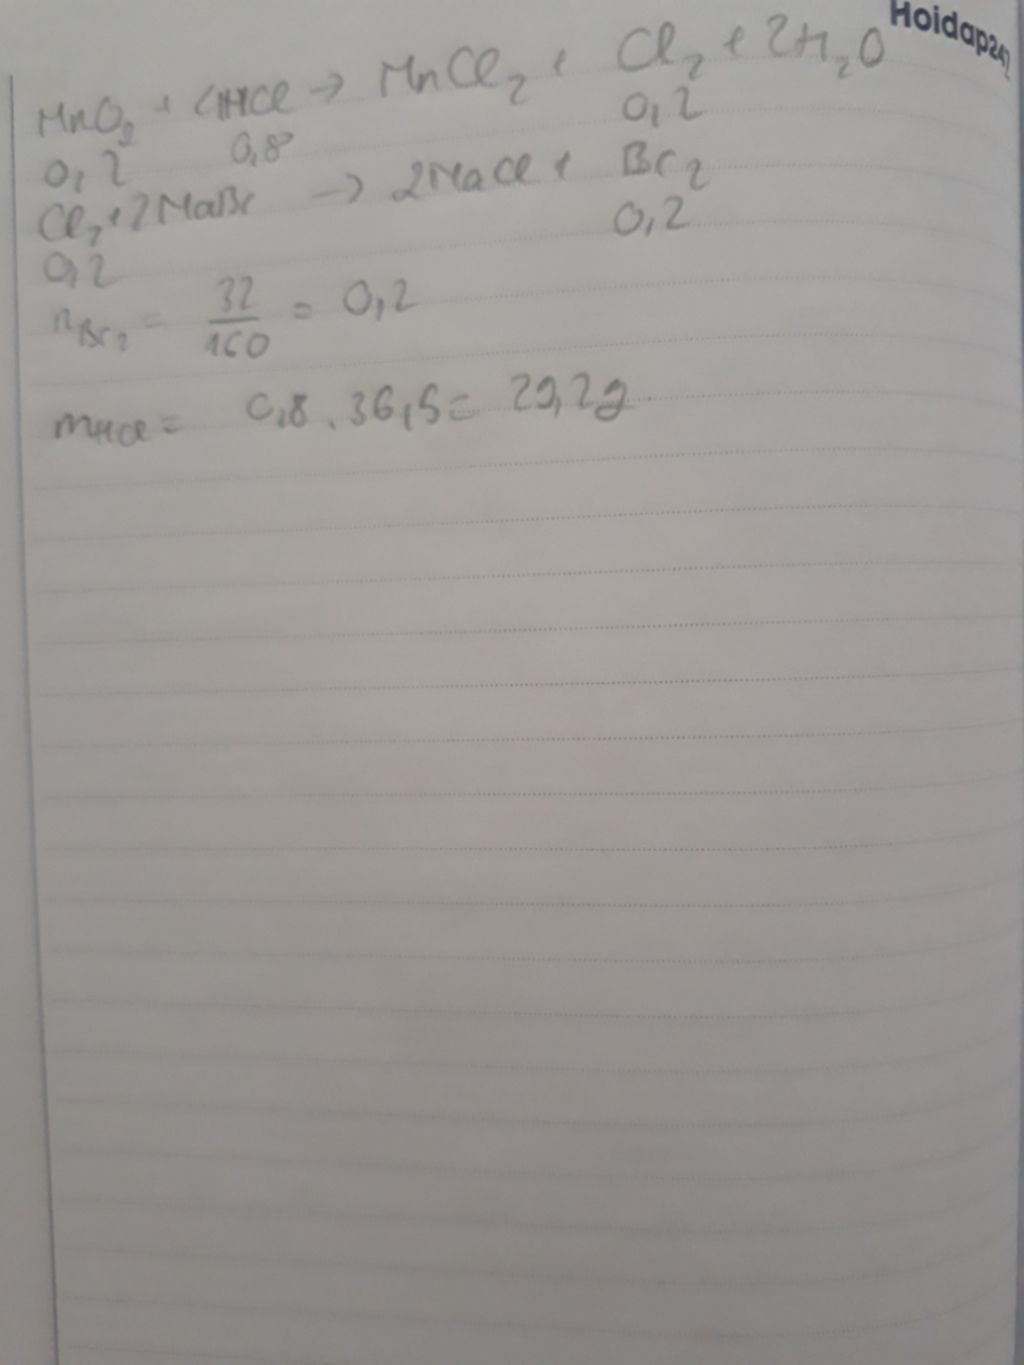 Hoidap247
MnO2 + 4HCl → MnCl2 + Cl2 + 2H2O
0,2 0,8 0,2
Cl2 + 2NaBr → 2NaCl + Br2
0,2 0,2
nBr2 = 32/160 = 0,2
mHCl = 0,8 . 36,5 = 29,2g